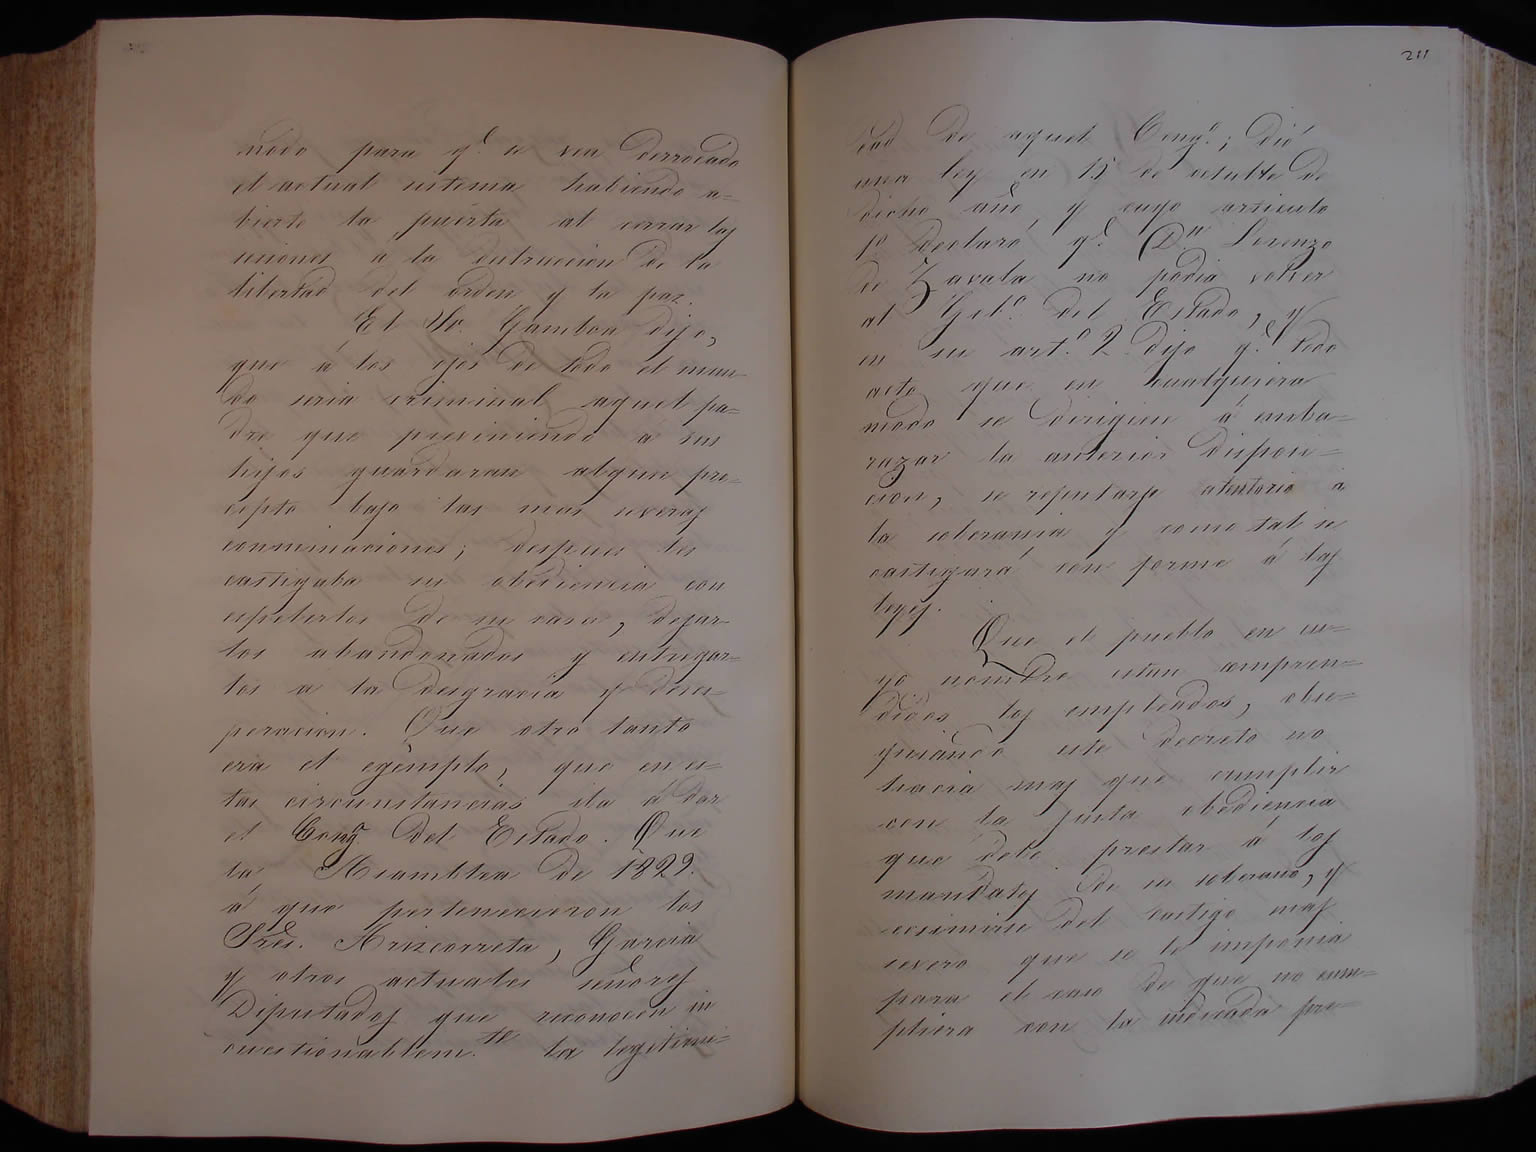 modo para q.e se vea derrocado
el actual sistema habiendo a=
bierto la puerta al cerrar las
uniones á la destruccion de la
libertad del orden y la paz.
El Sr. Gamboa dijo,
que á los ojos de todo el mun=
do seria criminal aquel pa=
dre que previniendo á sus
hijos guardaran algun pre=
cepto bajo las mas severas
conminaciones; despues los
castigaba su obediencia con
espelerlos de su casa, dejar=
los abandonados y entregar=
los a la desgracia y deses=
peracion. Que otro tanto
era el egemplo, que en es=
tas circunstancias iba á dar
el Cong.o del Estado. Que
la Asamblea de 1829.
á que pertenecieron los
Sres. Ariscorreta, Garcia
y otros actuales señores
Diputados que reconocen in
cuestionablem.te la legitimi=
211
dad de aquel Cong.o; dió
una ley en 15 de octubre de
dicho año, y cuyo articulo
1.o declaró q.e D.n Lorenzo
de Zavala no podia volver
al Gob.o del Estado, y
en su art.o 2.o dijo q.e todo
acto que en cualquiera
modo se dirigiese á emba=
razar la anterior disposi=
cion, se reputase atentorio á
la soberania y como tal se
castigará con forme á las
leyes.
Que el pueblo en cu=
yo nombre estan compren=
didos los empleados, obse=
quiando este decreto no
hacia mas que cumplir
con la justa obediencia
que debe prestar á los
mandatos de su soberano, y
ecsimirse del castigo mas
severo que se le imponia
para el caso de que no cum=
pliera con la indicada pre=